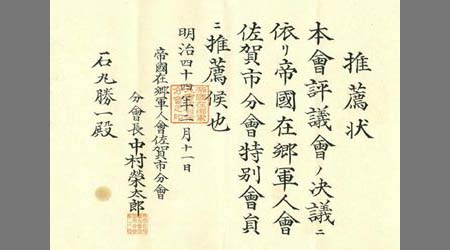 推薦状
本會評議會ノ決議ニ
依リ帝國在郷軍人會
佐賀市分會特別會員
ニ推薦候也
明治四十四年二月十一日
帝國在郷軍人會佐賀市分會
分會長中村榮太郎
石丸勝一殿